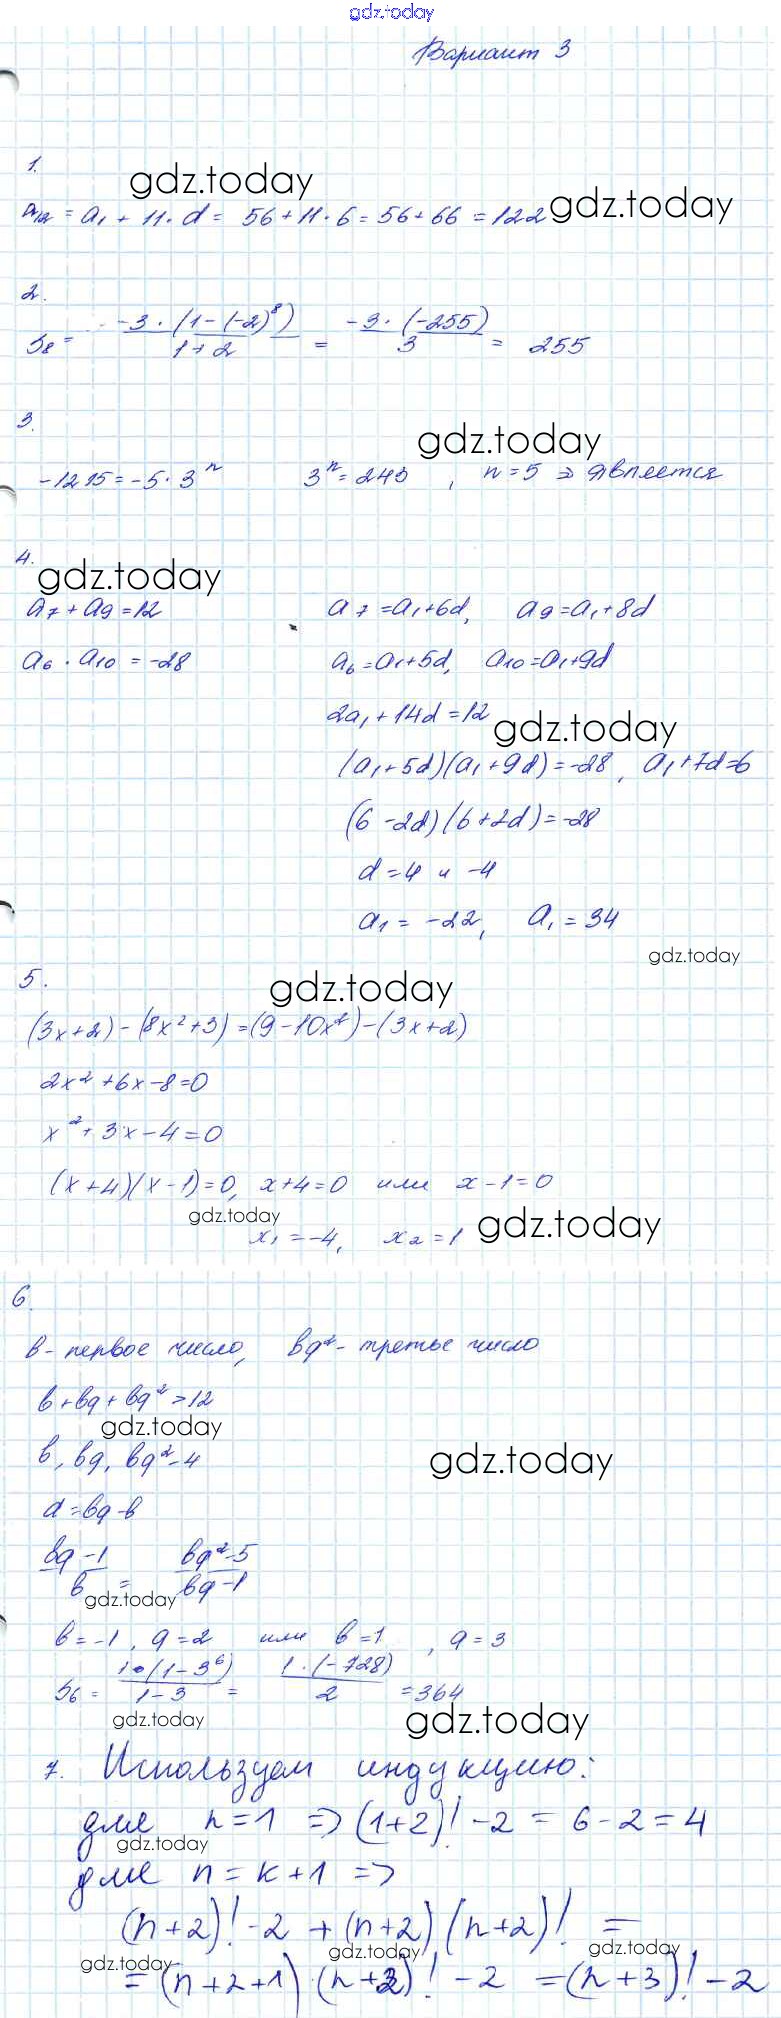 gdz.today
Вариант 3
1.
gdz.today
a₁₂ = a₁ + 11· d = 56+11·6=56+66=122 gdz.today
2.
S₈ = -3·(1-(-2)⁸) / 1+2 = -3·(-255) / 3 = 255
3.
gdz.today
-1215=-5·3ⁿ 3ⁿ=243 , n=5 => является
4.
gdz.today
a₇+a₉=12 a₇=a₁+6d, a₉=a₁+8d
a₆·a₁₀=-28 a₆=a₁+5d, a₁₀=a₁+9d
2a₁+14d=12
gdz.today
(a₁+5d)(a₁+9d)=-28, a₁+7d=6
(6-2d)(6+2d)=-28
d=4 и -4
a₁=-22, a₁=34
gdz.today
5.
gdz.today
(3x+2)-(8x²+3)=(9-10x²)-(3x+2)
2x²+6x-8=0
x²+3x-4=0
(x+4)(x-1)=0, x+4=0 или x-1=0
gdz.today
x₁=-4, x₂=1 gdz.today
6.
в-первое число, вq²-третье число
в+вq+вq²>12
gdz.today
в, вq, вq²-4 gdz.today
d=вq-в
вq-1 / в = вq²-5 / вq-1
gdz.today
в=-1, q=2 или в=1, q=3
S₆ = 1·(1-3⁶) / 1-3 = 1·(-728) / 2 =364
gdz.today gdz.today
7. Используем индукцию:
для n=1 => (1+2)!-2=6-2=4
gdz.today
для n=k+1 =>
(n+2)!-2+(n+2)(n+2)! =
gdz.today gdz.today gdz.today
=(n+2+1)·(n+2)!-2=(n+3)!-2